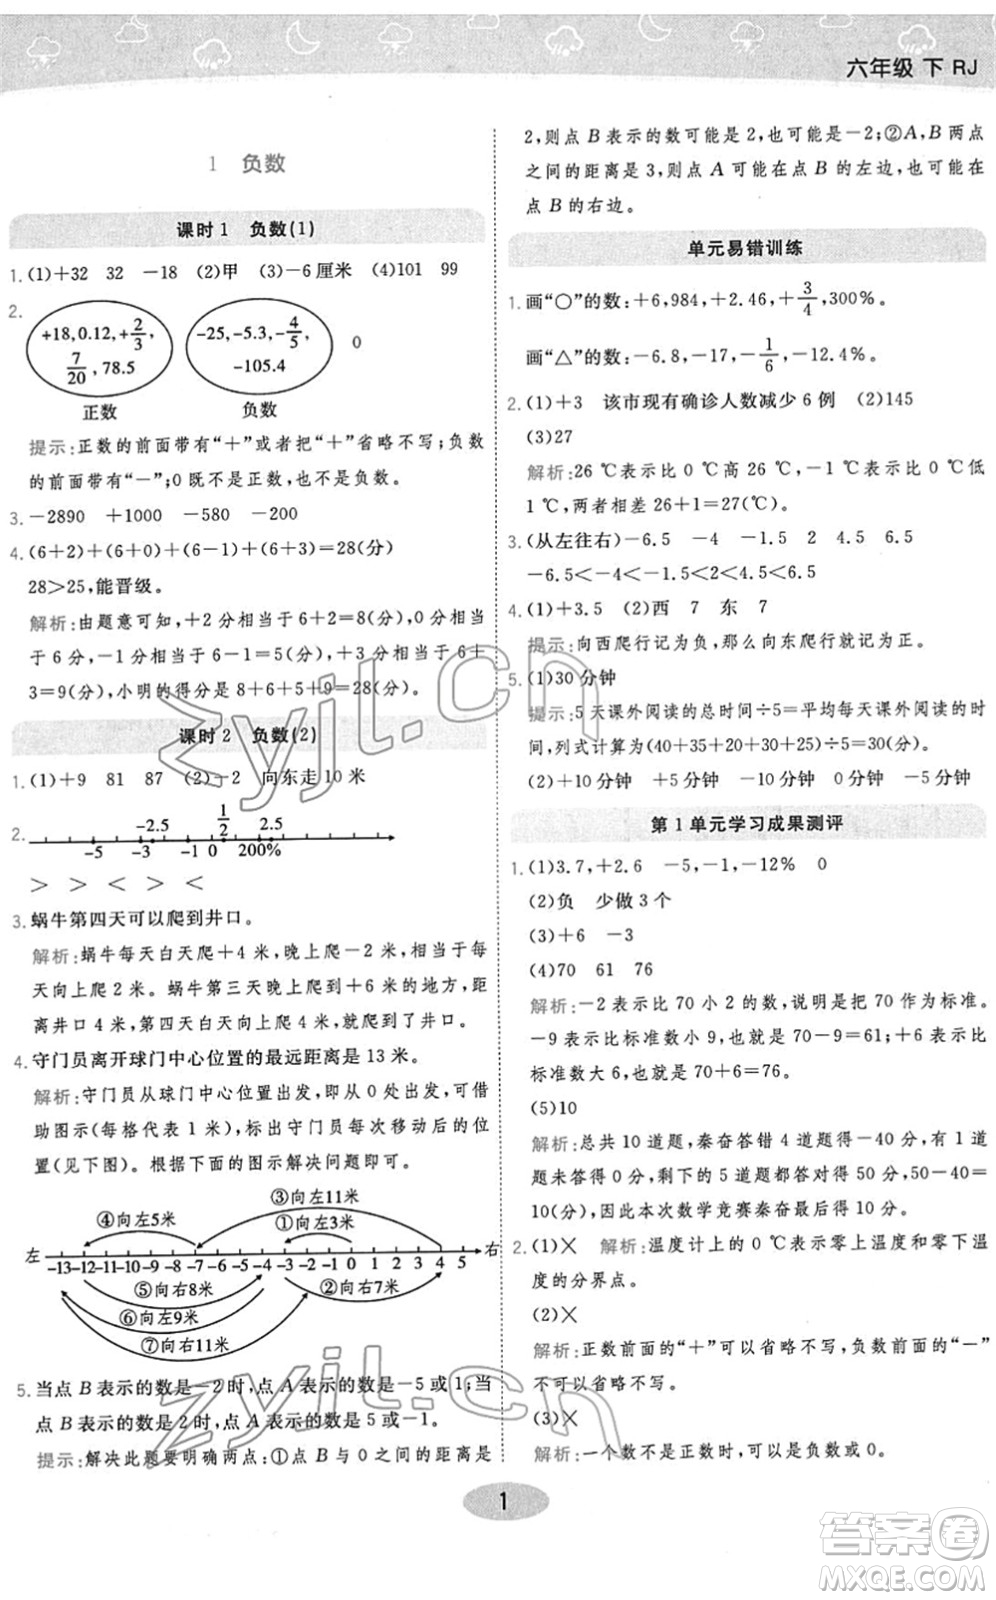 六年级 下 RJ
1 负数
课时1 负数(1)
1. (1)+32 32 -18 (2)甲 (3)-6厘米 (4)101 99
2. +18,0.12,+2/3,
7/20,78.5
正数
-25,-5.3,-4/5,
-105.4
负数
0
提示:正数的前面带有“+”或者把“+”省略不写;负数
的前面带有“-”;0既不是正数,也不是负数。
3. -2890 +1000 -580 -200
4. (6+2)+(6+0)+(6-1)+(6+3)=28(分)
28>25,能晋级。
解析:由题意可知,+2分相当于6+2=8(分),0分相当
于6分,-1分相当于6-1=5(分),+3分相当于6+
3=9(分),小明的成绩是8+6+5+9=28(分)。
课时2 负数(2)
1. (1)+9 81 87 (2)-2 向东走10米
2. -2.5 1/2 2.5
-5 -3 -1 0 200%
> > > < <
3. 蜗牛第四天可以爬到井口。
解析:蜗牛每天白天爬+4米,晚上爬-2米,相当于每
天向上爬2米。蜗牛第三天晚上在+6米的地方,距
离井口4米,第四天白天向上爬4米,就爬到了井口。
4. 守门员离开球门中心位置的最远距离是13米。
解析:守门员从球门中心位置出发,即从0处出发,可借
助图示(每格代表1米),标出守门员每次移动后的位
置(见下图)。根据下面的图示解决问题即可。
③向左11米
④向左5米 ①向左3米
左 右
-13-12-11-10-9 -8 -7 -6 -5 -4 -3 -2 -1 0 1 2 3 4 5
⑤向右8米 ②向右7米
⑥向左9米
⑦向右11米
5. 当点B表示的数是-2时,点A表示的数是-5或1;当
点B表示的数是2时,点A表示的数是5或-1。
提示:解决此题要明确两点:①点B与0之间的距离是
2,则点B表示的数可能是2,也可能是-2;②A,B两点
之间的距离是3,则点A可能在点B的左边,也可能在
点B的右边。
单元易错训练
1. 画“○”的数:+6,984,+2.46,+3/4,300%。
画“△”的数:-6.8,-17,-1/6,-12.4%。
2. (1)+3 该市现有确诊人数减少6例 (2)145
(3)27
解析:26 ℃表示比0 ℃高26 ℃,-1 ℃表示比0 ℃低
1 ℃,两者相差26+1=27(℃)。
3. (从左往右)-6.5 -4 -1.5 2 4.5 6.5
-6.5<-4<-1.5<2<4.5<6.5
4. (1)+3.5 (2)西 7 东 7
提示:向西爬行记为负,那么向东爬行就记为正。
5. (1)30分钟
提示:5天课外阅读的总时间÷5=平均每天课外阅读的时
间,列式计算为(40+35+20+30+25)÷5=30(分钟)。
(2)+10分钟 +5分钟 -10分钟 0分钟 -5分钟
第1单元学习成果测评
1. (1)3.7,+2.6 -5,-1,-12% 0
(2)负 少做3个
(3)+6 -3
(4)70 61 76
解析:-2表示比70小2的数,说明是把70作为标准。
-9表示比标准数小9,也就是70-9=61;+6表示比
标准数大6,也就是70+6=76。
(5)10
解析:总共10道题,秦奋答错4道题得-40分,有1道
题未答得0分,剩下的5道题都答对得50分,50-40=
10(分),因此本次数学竞赛秦奋最后得10分。
2. (1)× 解析:温度计上的0 ℃是零上温度和零下温
度的分界点。
(2)×
解析:正数前面的“+”可以省略不写,负数前面的“-”
不可以省略不写。
(3)×
解析:一个数不是正数,可能是负数或0。
1
zyjl.cn
zyjl.cn
答案圈
MXQE.COM